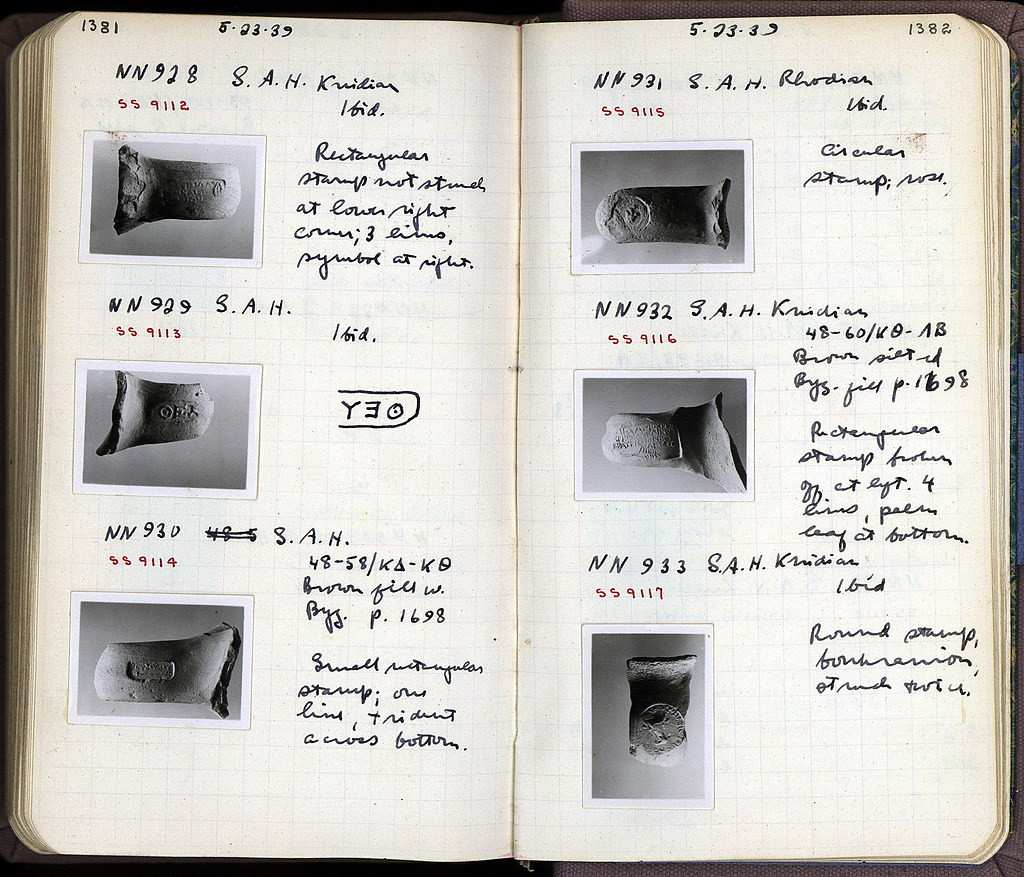 1381
5-23-39
NN928 S.A.H. Knidian
SS 9112
Ibid.
Rectangular
stamp not struck
at lower right
corner; 3 lines,
symbol at right.
NN929 S.A.H.
SS 9113
Ibid.
ΥƎΘ
NN930 48-5 S.A.H.
SS 9114
48-58/ΚΔ-ΚΘ
Brown fill w.
Byz. p. 1698
Small rectangular
stamp; one
line, trident
across bottom.
5-23-39
1382
NN931 S.A.H. Rhodian
SS 9115
Ibid.
Circular
stamp; rose.
NN932 S.A.H. Knidian
SS 9116
48-60/ΚΘ-ΛΒ
Brown
Byz. fill p. 1698
Rectangular
stamp broken
off at left. 4
lines, palm
leaf at bottom.
NN 933 S.A.H. Knidian
SS 9117
Ibid
Round stamp,
boukranion,
struck twice.